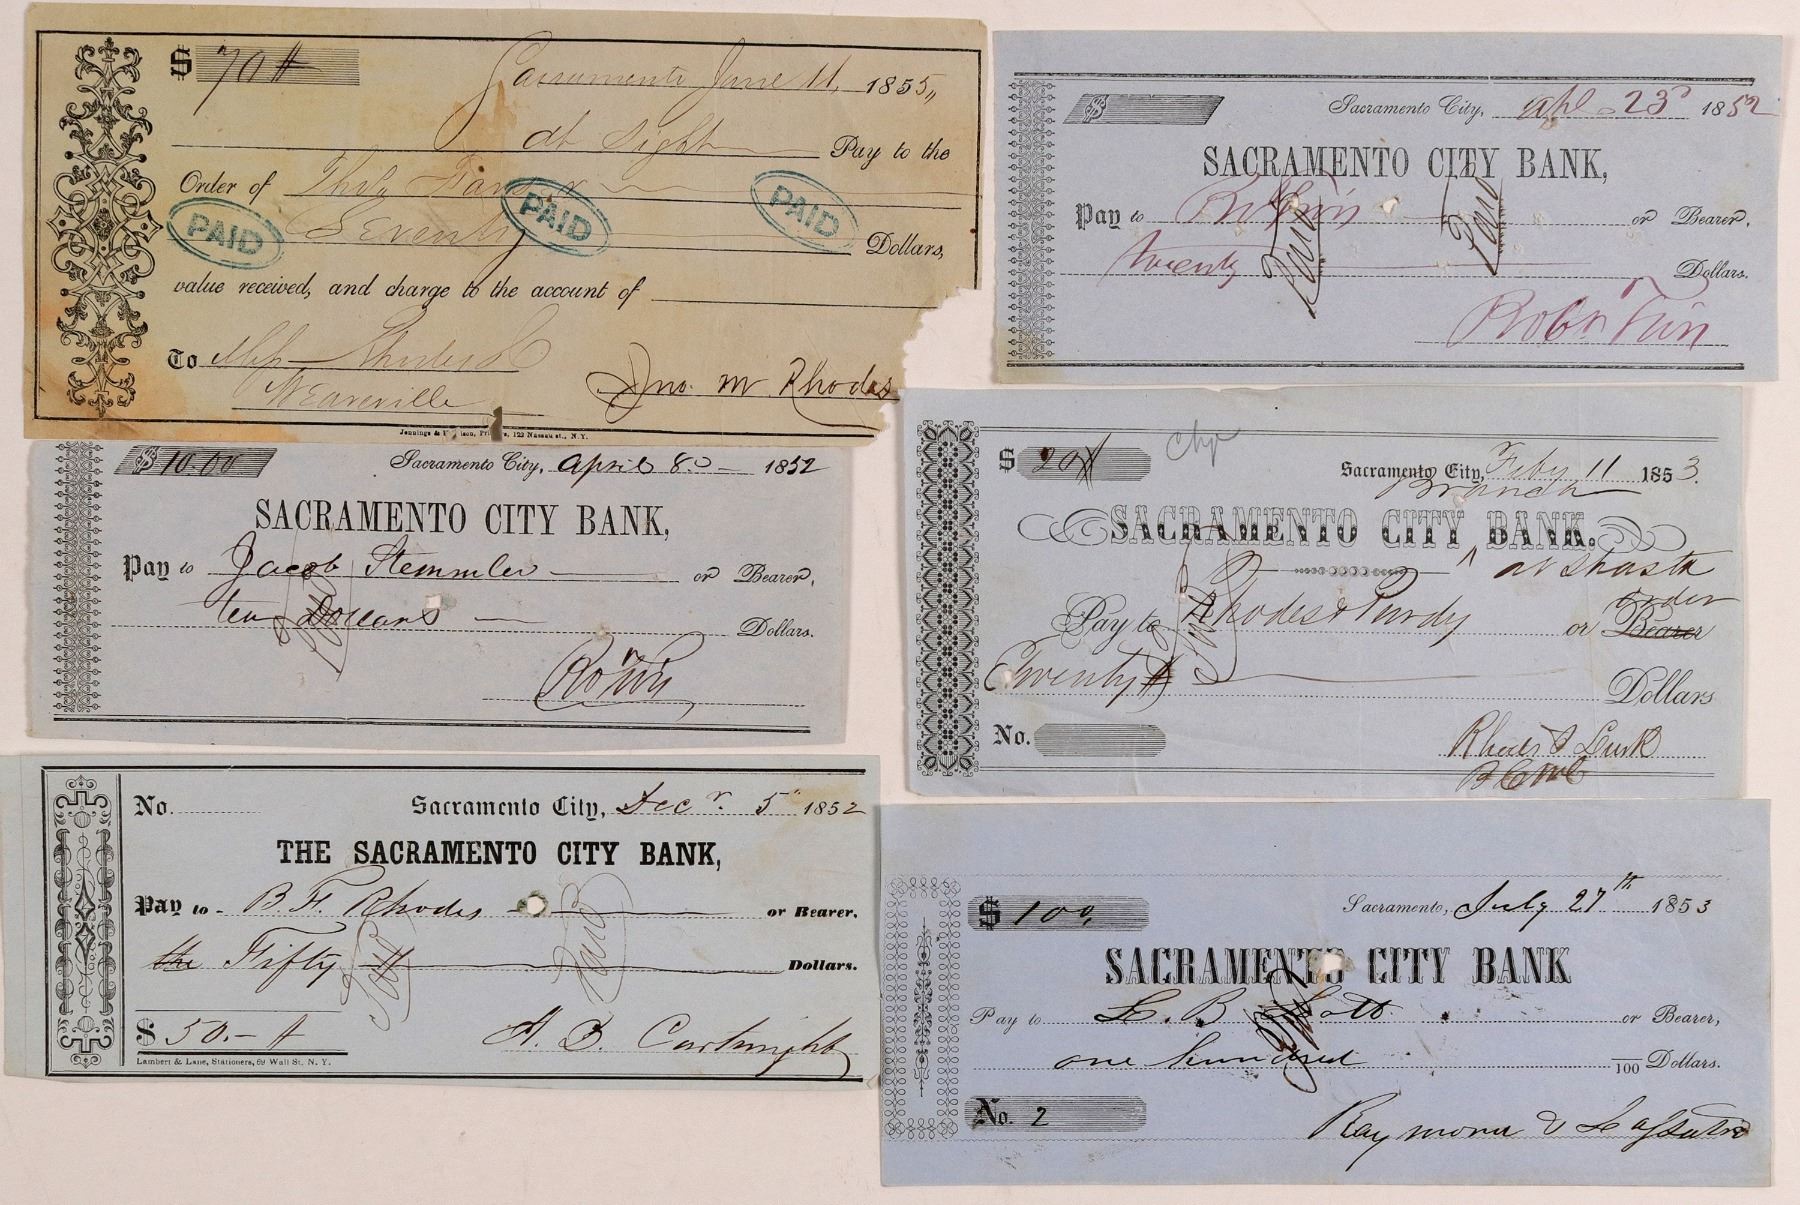 $ 70 Sacramento June 11, 1855,,
at Sight Pay to the
Order of
Seventy Dollars,
PAID
PAID
PAID
value received, and charge to the account of
To Mess
Weaverville Jno. M. Rhodes
Jennings & Printers, 122 Nassau st., N.Y.
$ Sacramento City, apl 23 1852
SACRAMENTO CITY BANK,
Pay to or Bearer.
twenty Dollars.
Paid
Paid
$ 10.00 Sacramento City, April 8 1852
SACRAMENTO CITY BANK,
Pay to Jacob Stemmler or Bearer,
ten Dollars Dollars.
Paid
$ 20 Chf
Sacramento City, Feby 11 1853.
Branch
SACRAMENTO CITY BANK.
^ at Shasta
Pay to Rhodes & Purdy or Bearer
order
Twenty Dollars
Paid
No.
Rhodes & Lusk
No. Sacramento City, Decr. 5" 1852
THE SACRAMENTO CITY BANK,
Pay to B. F. Rhodes or Bearer.
the Fifty Dollars.
Paid
Paid
$ 50.-
A. D. Cartwright
Lambert & Lane, Stationers, 69 Wall St. N. Y.
$ 100, Sacramento, July 27th 1853
SACRAMENTO CITY BANK
Pay to L. B. Scott or Bearer,
one hundred 100 Dollars.
Paid
No. 2
Raymond &